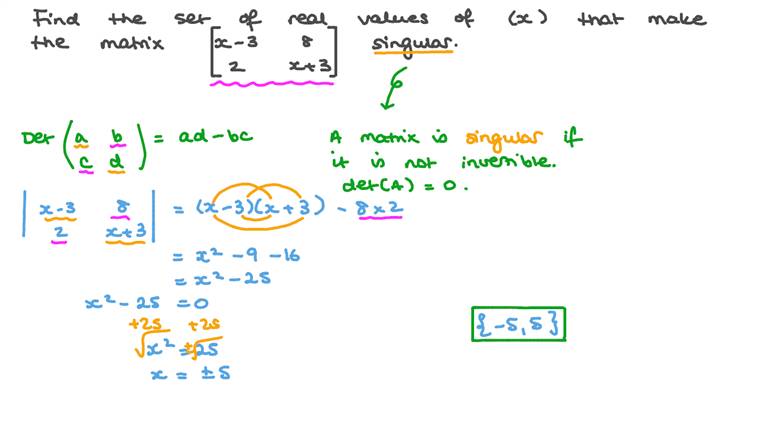 Find the set of real values of (x) that make
the matrix [x-3 8
2 x+3] singular.
Det (a b
c d) = ad-bc
A matrix is singular if
it is not inversible.
det(A) = 0.
|x-3 8
2 x+3| = (x-3)(x+3) - 8×2
= x² - 9 - 16
= x² - 25
x² - 25 = 0
+25 +25
√x² = ±√25
x = ±5
{-5, 5}